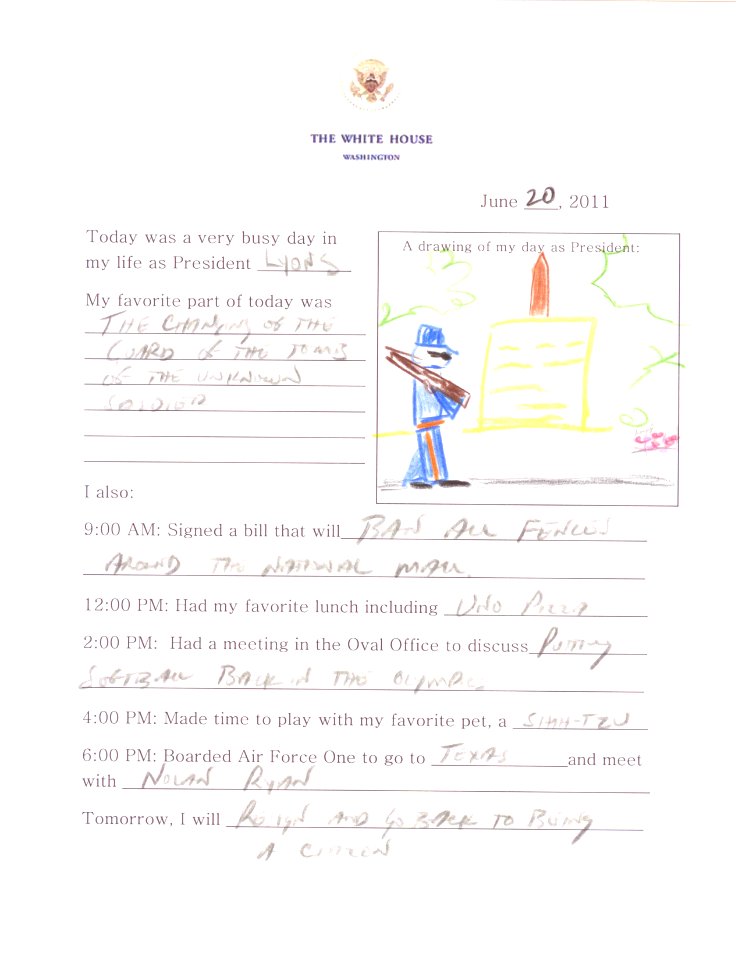 THE WHITE HOUSE
WASHINGTON
June 20, 2011
Today was a very busy day in
my life as President LYONS
My favorite part of today was
THE CHANGING OF THE
GUARD OF THE TOMB
OF THE UNKNOWN
SOLDIER
A drawing of my day as President:
I also:
9:00 AM: Signed a bill that will BAN ALL FENCES
AROUND THE NATIONAL MALL.
12:00 PM: Had my favorite lunch including UNO PIZZA
2:00 PM: Had a meeting in the Oval Office to discuss PUTTING
SOFTBALL BACK IN THE OLYMPICS
4:00 PM: Made time to play with my favorite pet, a SHIH-TZU
6:00 PM: Boarded Air Force One to go to TEXAS and meet
with NOLAN RYAN
Tomorrow, I will RESIGN AND GO BACK TO BEING
A CITIZEN